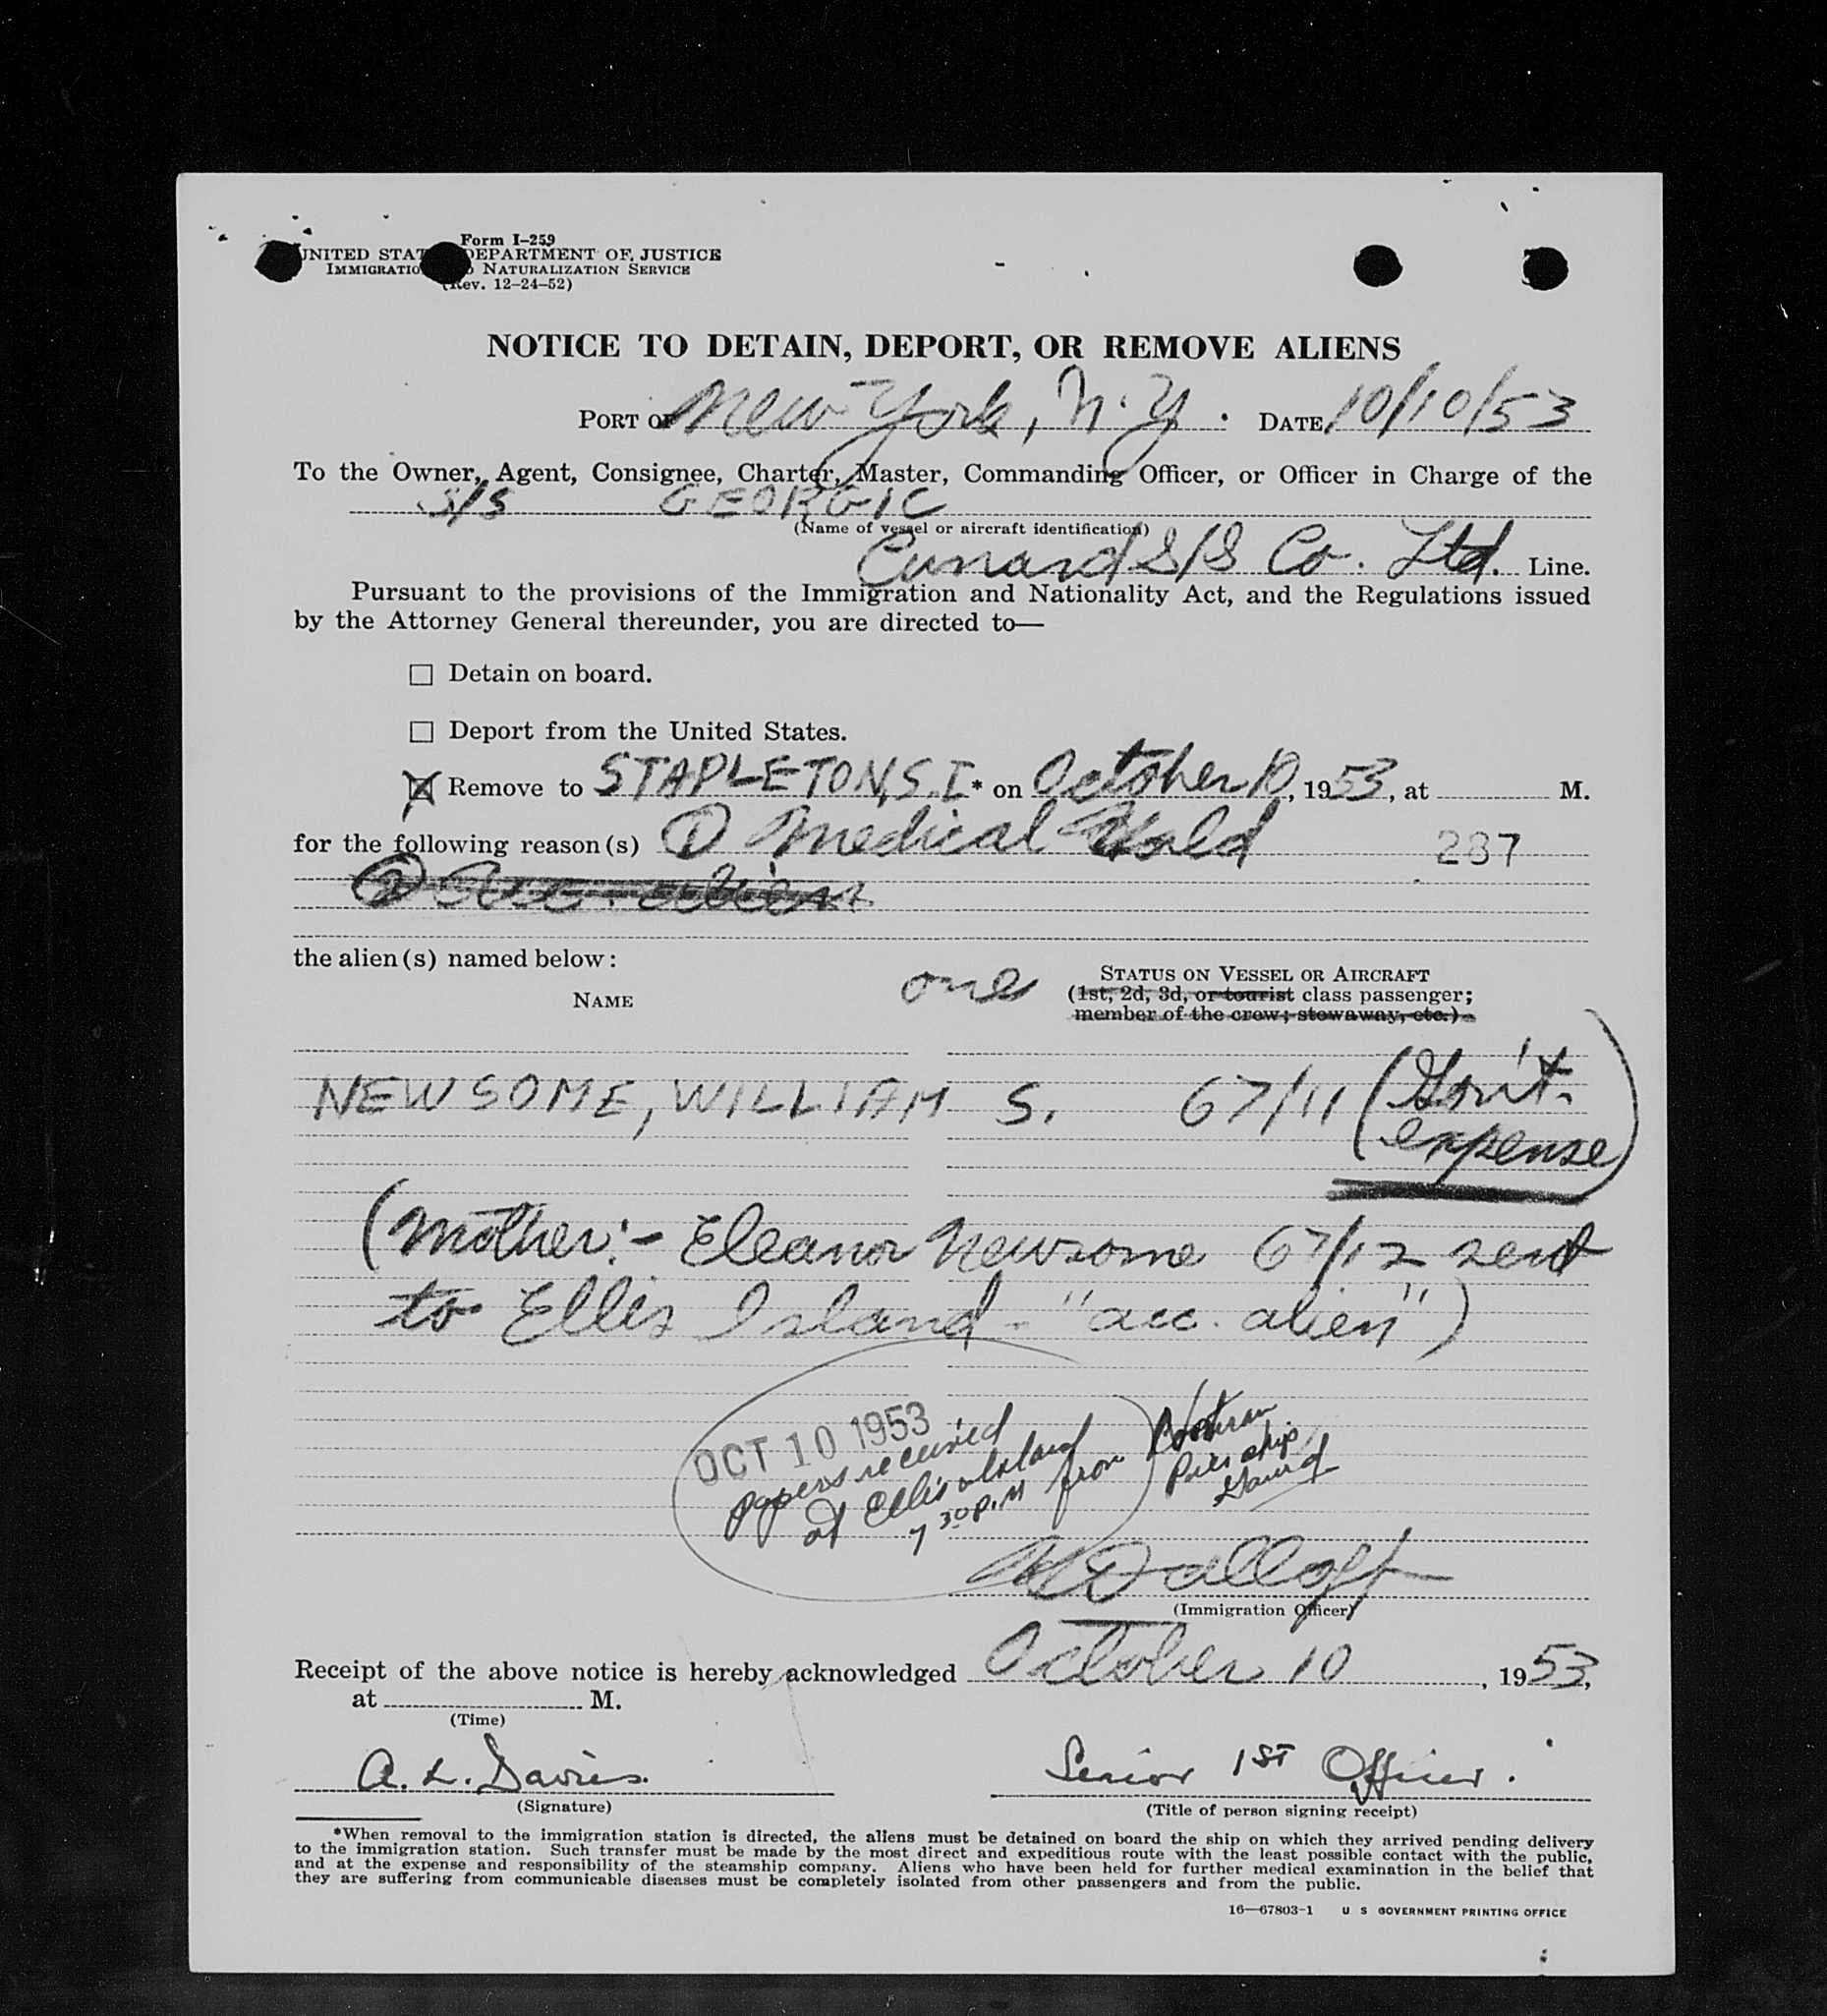 Form I-259
UNITED STAT DEPARTMENT OF JUSTICE
IMMIGRATIO NATURALIZATION SERVICE
(Rev. 12-24-52)
NOTICE TO DETAIN, DEPORT, OR REMOVE ALIENS
PORT OF New York, N.Y. DATE 10/10/53
To the Owner, Agent, Consignee, Charter, Master, Commanding Officer, or Officer in Charge of the
S/S GEORGIC
(Name of vessel or aircraft identification)
Cunard S/S Co. Ltd. Line.
Pursuant to the provisions of the Immigration and Nationality Act, and the Regulations issued
by the Attorney General thereunder, you are directed to—
☐ Detain on board.
☐ Deport from the United States.
☒ Remove to STAPLETON, S.I.* on October 10, 1953, at M.
for the following reason(s) ① Medical Hold 287
② Acc. alien
the alien(s) named below:
one STATUS ON VESSEL OR AIRCRAFT
NAME (1st, 2d, 3d, or tourist class passenger;
member of the crew; stowaway, etc.)
NEWSOME, WILLIAM S. 67/11 (Gov't.
expense)
(Mother:- Eleanor Newsome 67/12 sent
to Ellis Island - "acc. alien")
OCT 10 1953
papers received
at Ellis Island from
7 30 P.M
Guard
(Immigration Officer)
Receipt of the above notice is hereby acknowledged October 10, 1953,
at M.
(Time)
A. L. Davies. Senior 1ST Officer.
(Signature) (Title of person signing receipt)
*When removal to the immigration station is directed, the aliens must be detained on board the ship on which they arrived pending delivery
to the immigration station. Such transfer must be made by the most direct and expeditious route with the least possible contact with the public,
and at the expense and responsibility of the steamship company. Aliens who have been held for further medical examination in the belief that
they are suffering from communicable diseases must be completely isolated from other passengers and from the public.
16—67803-1 U S GOVERNMENT PRINTING OFFICE